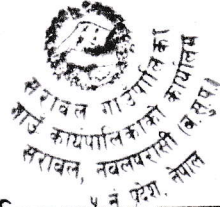 सरावल गाउँपालिका
गाउँ कार्यपालिकाको कार्यालय
सरावल, नवलपरासी (ब.सु.प.)
५ नं. प्रदेश, नेपाल